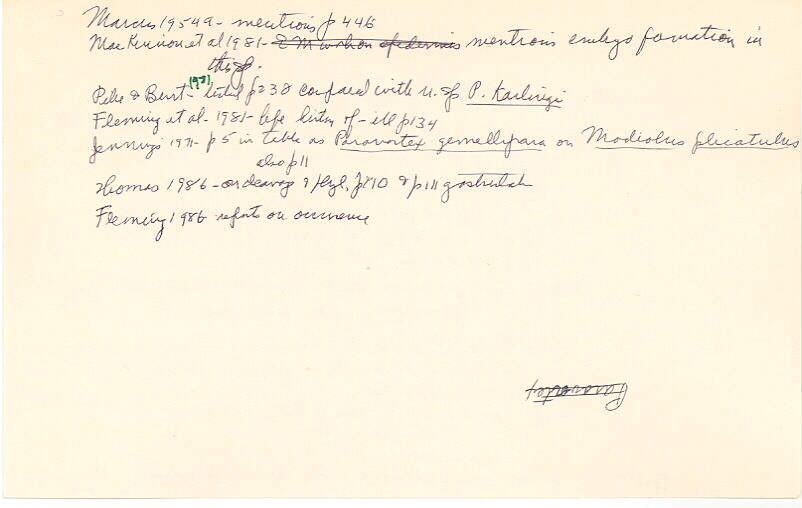 Marcus 1954a - mentions p 446
MacKinnon et al 1981 - E M work on epidermis mentions embryo formation in
this sp.
Pike & Burt 1981 - listed p 238 compared with n. sp P. Karlingi
Fleming et al - 1981 - life history of - ill p 134
Jennings 1971 - p 5 in table as Paravortex gemellipara on Modiolus plicatulus
also p 11
Thomas 1986 - on cleavage & phyl, p 210 & p 111 gastrulation
Fleming 1986 reports on occurrence